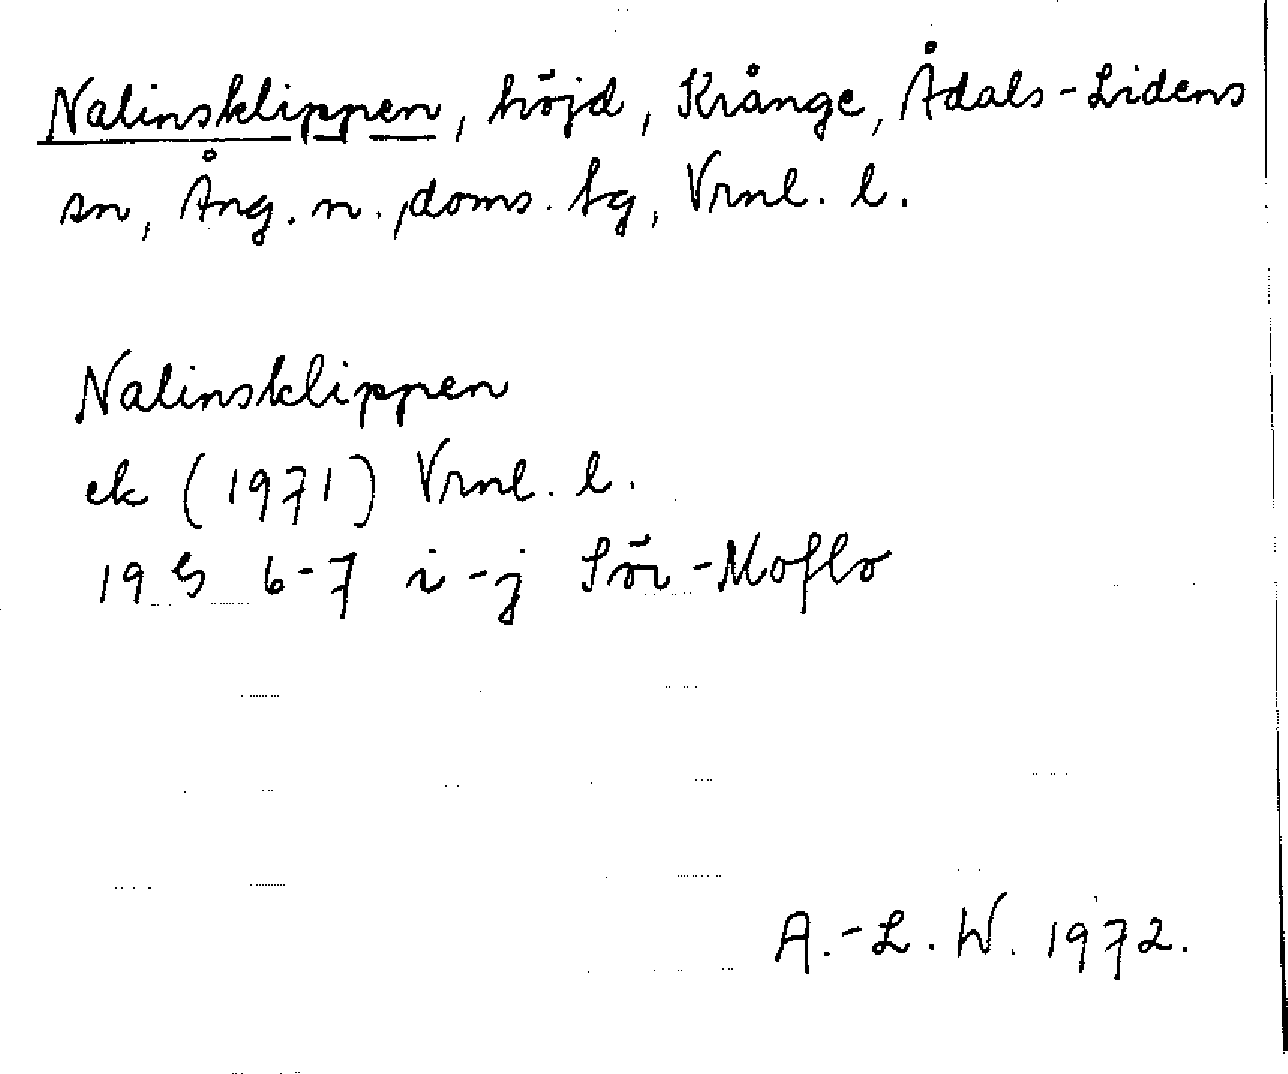 Nalinsklippen, höjd, Krånge, Ådals-Lidens
sn, Ång. n. doms. tg, Vrnl. l.
Nalinsklippen
ek (1971) Vrnl. l.
19 G 6-7 i-j Sör-Moflo
A.-L. W. 1972.